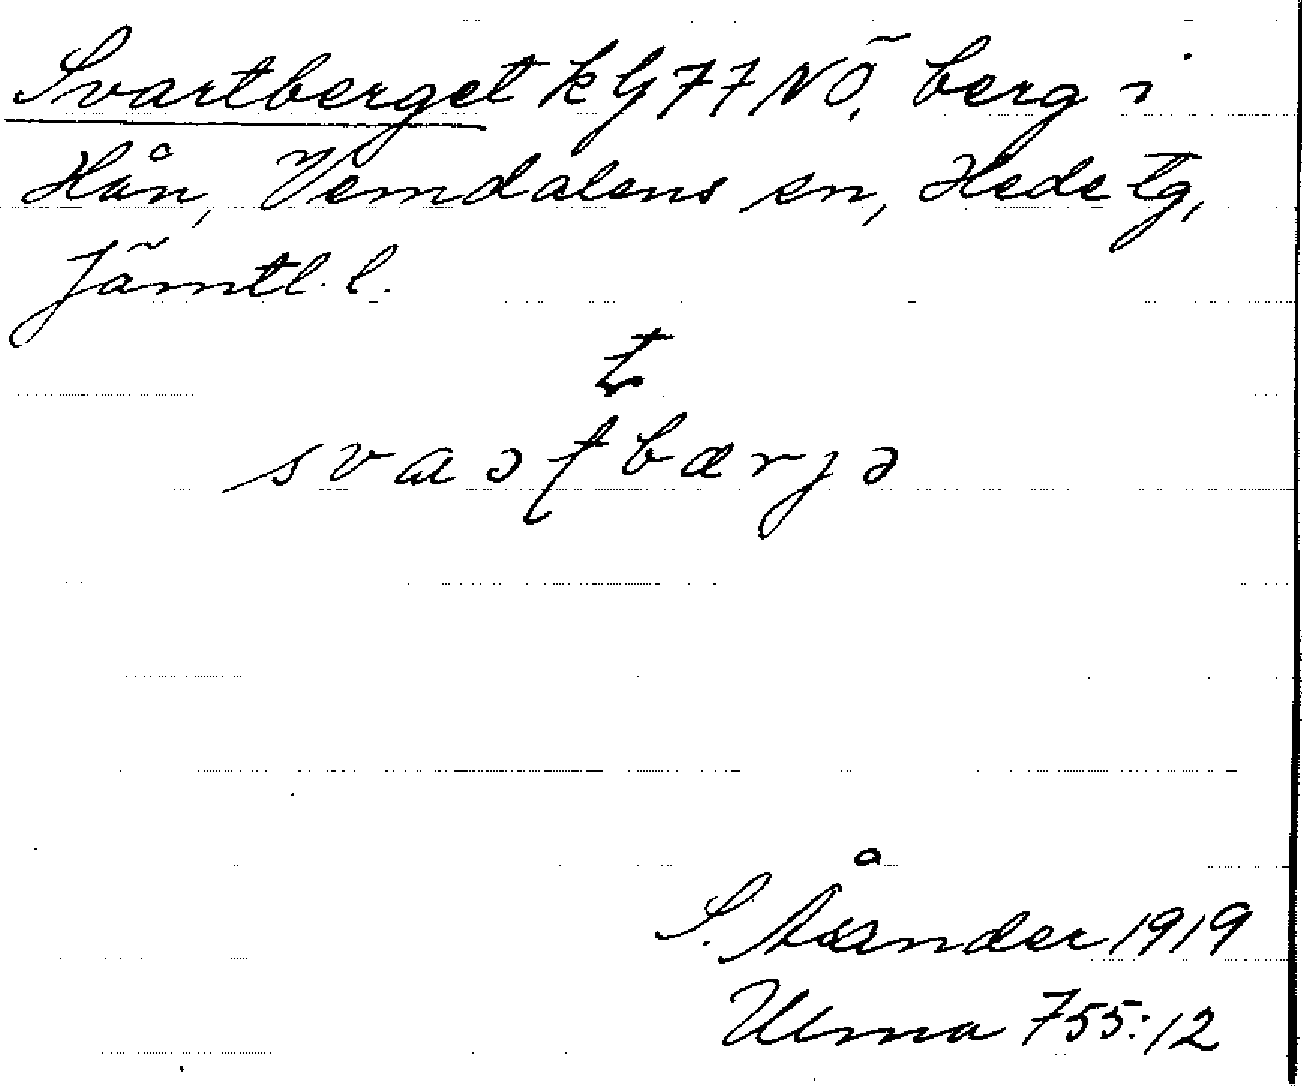 Svartberget kG77NÖ, berg i
Hån, Vemdalens sn, Hede tg,
Jämtl. l.
t
svaəʈbærjə
S. Åsander 1919
Ulma 755:12